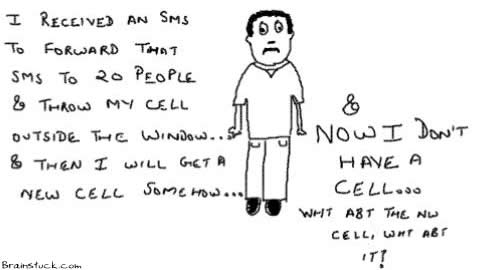 I RECEIVED AN SMS
TO FORWARD THAT
SMS TO 20 PEOPLE
& THROW MY CELL
OUTSIDE THE WINDOW...
& THEN I WILL GET A
NEW CELL SOMEHOW...
&
NOW I DON'T
HAVE A
CELL....
WHT ABT THE NW
CELL, WHT ABT
IT!
Brainstuck.com